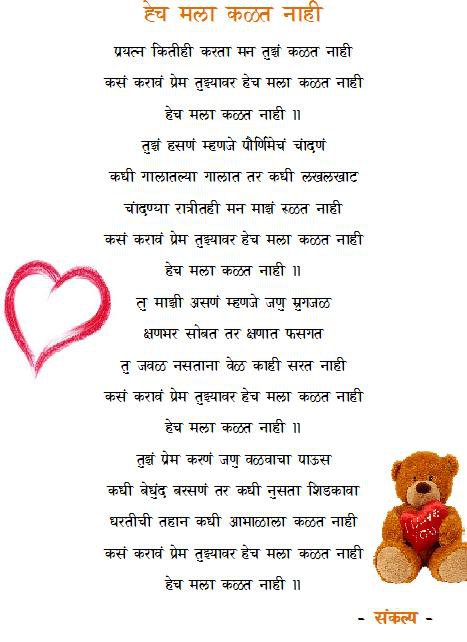 हेच मला कळत नाही
प्रयत्न कितीही करता मन तुझं कळत नाही
कसं करावं प्रेम तुझ्यावर हेच मला कळत नाही
हेच मला कळत नाही ॥
तुझं हसणं म्हणजे पौर्णिमेचं चांदणं
कधी गालातल्या गालात तर कधी लखलखाट
चांदण्या रात्रीतही मन माझं रुळत नाही
कसं करावं प्रेम तुझ्यावर हेच मला कळत नाही
हेच मला कळत नाही ॥
तु माझी असणं म्हणजे जणु म्रुगजळ
क्षणभर सोबत तर क्षणात फसगत
तु जवळ नसताना वेळ काही सरत नाही
कसं करावं प्रेम तुझ्यावर हेच मला कळत नाही
हेच मला कळत नाही ॥
तुझं प्रेम करणं जणु वळवाचा पाऊस
कधी बेधुंद बरसणं तर कधी नुसता शिडकावा
धरतीची तहान कधी आभाळाला कळत नाही
कसं करावं प्रेम तुझ्यावर हेच मला कळत नाही
हेच मला कळत नाही ॥
I LOVE
YOU
- संकल्प -